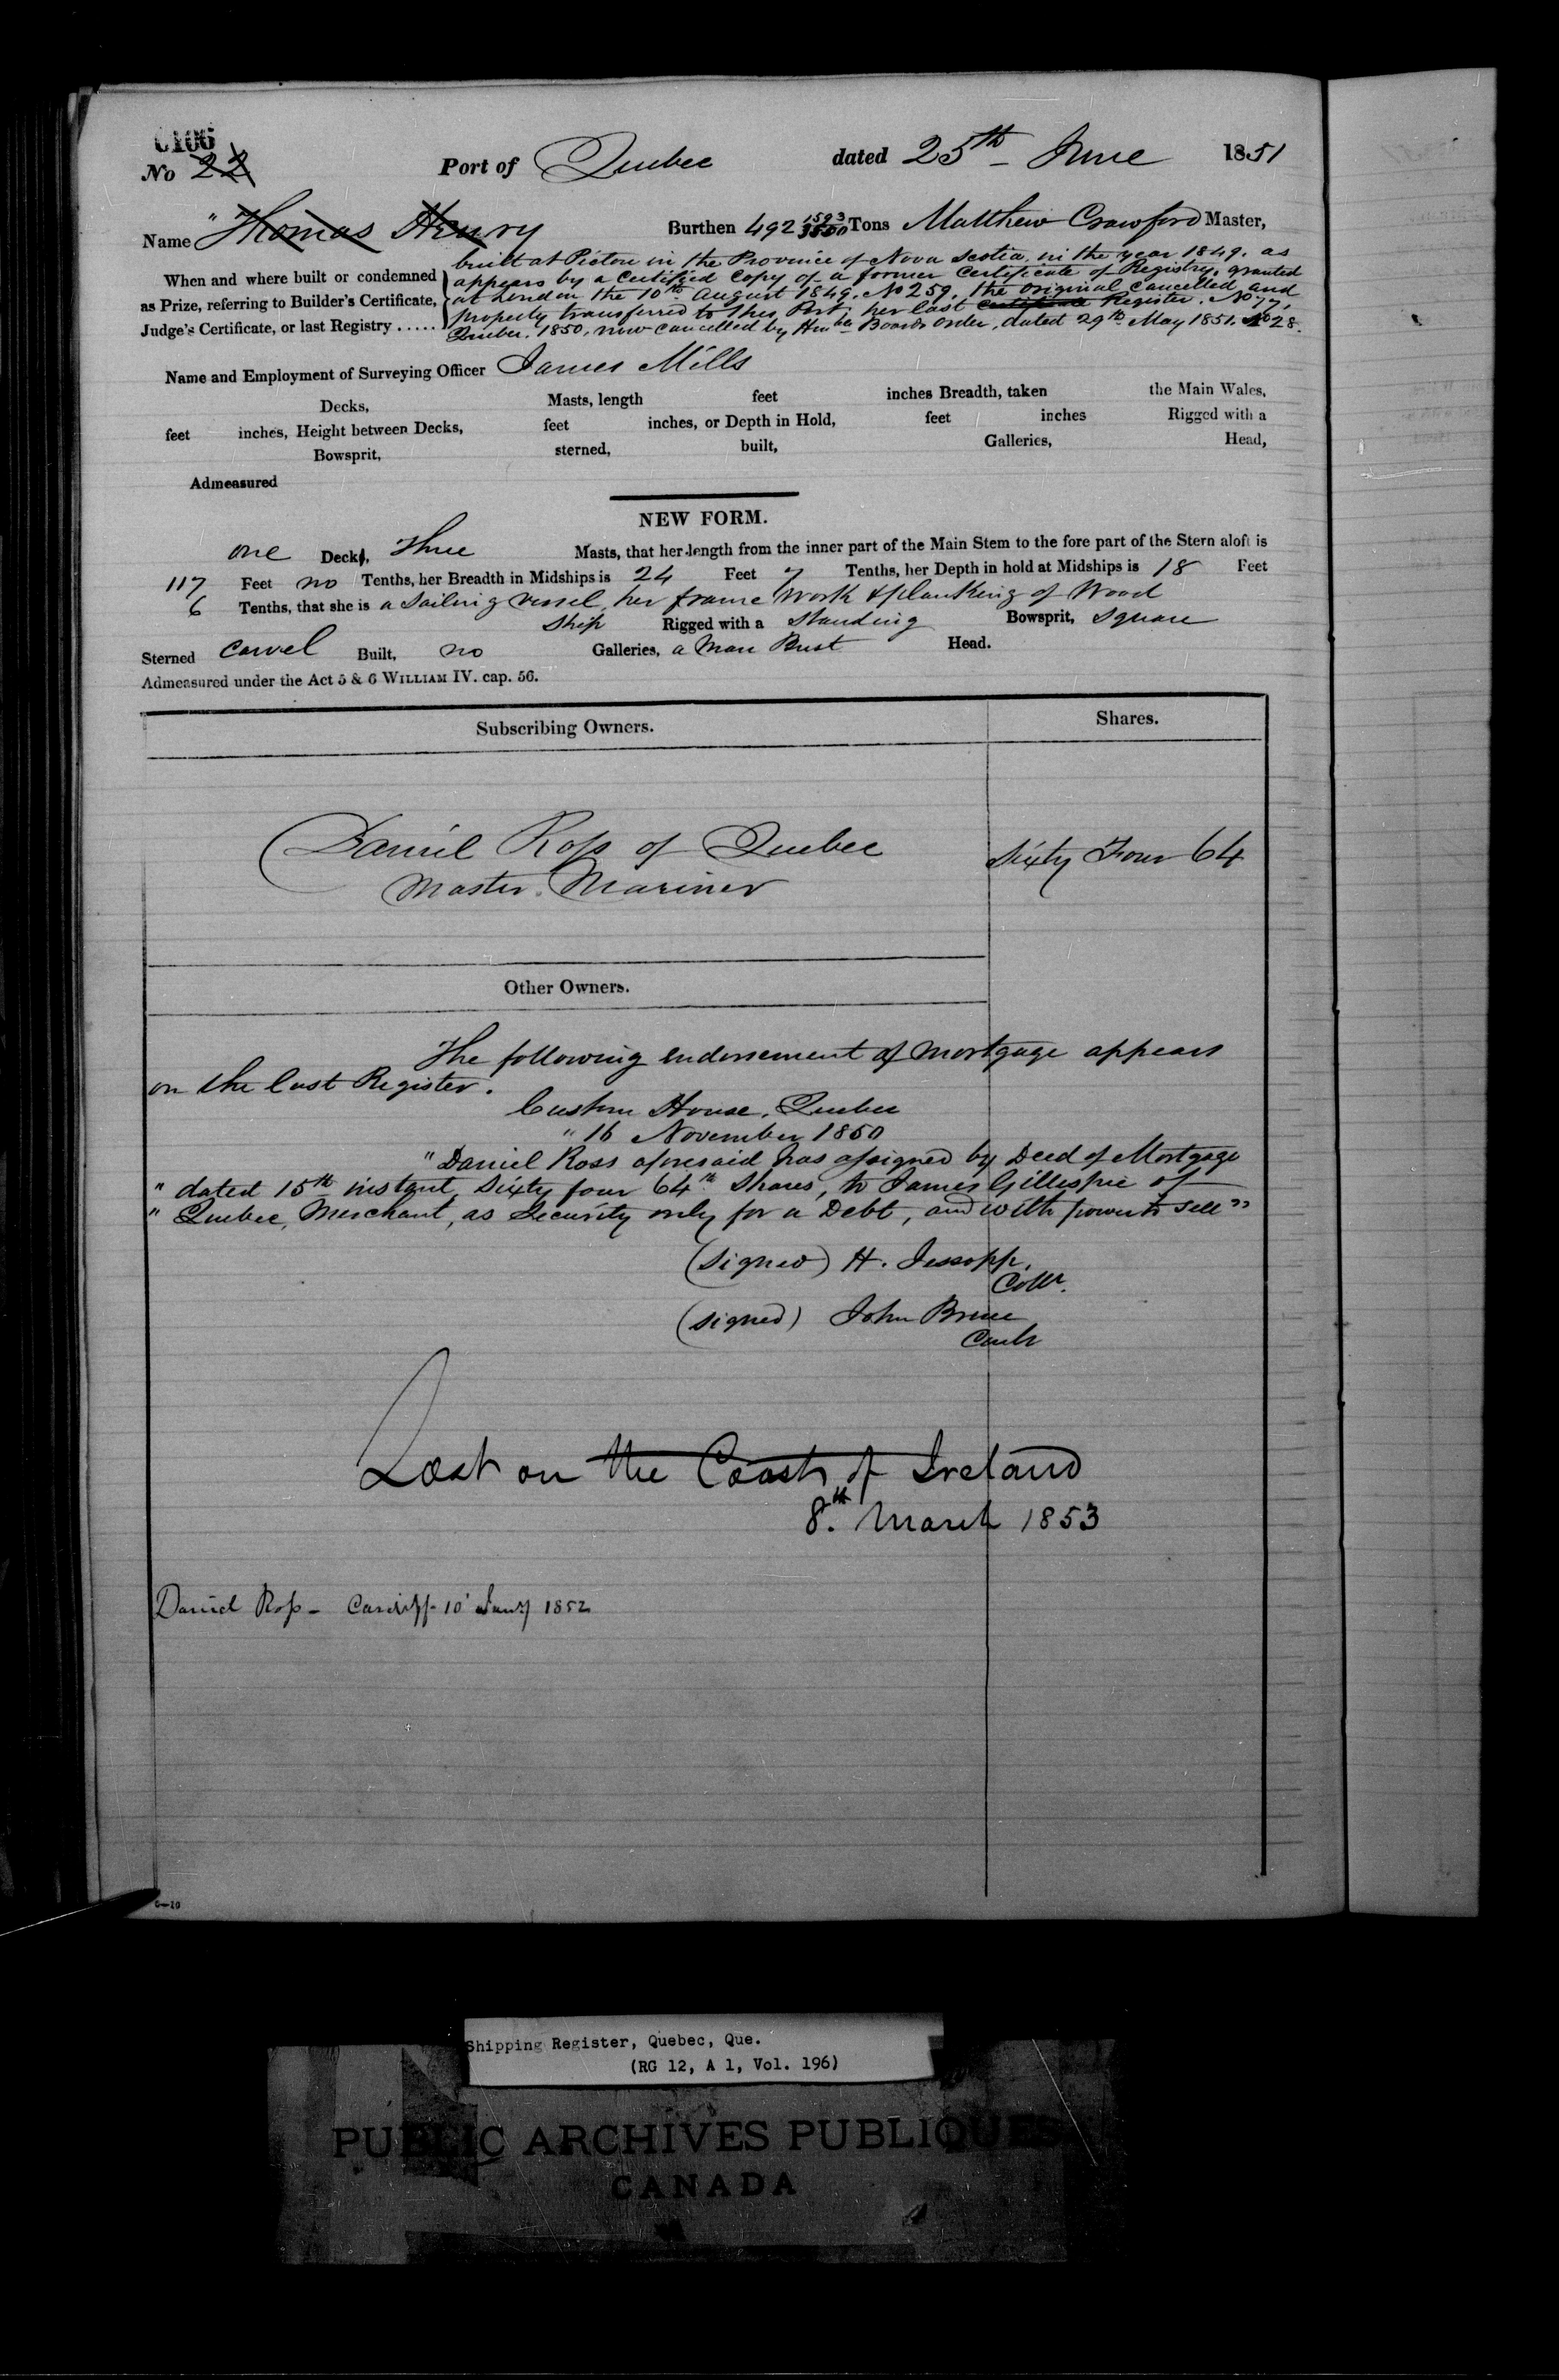 0106
No 22 Port of Quebec dated 25th June 1851
Name "Thomas Henry Burthen 492 1593/3500 Tons Matthew Crawford Master,
When and where built or condemned as Prize, referring to Builder's Certificate, Judge's Certificate, or last Registry .....
built at Pictou in the Province of Nova Scotia in the year 1849. as
appears by a Certified Copy of a former Certificate of Registry, granted
at London the 10th August 1849. No 259. the original Cancelled and
property transferred to this Port, her last certificate Register. No 77.
Quebec. 1850, now cancelled by Honble Boards Order, dated 29th May 1851. No 28.
Name and Employment of Surveying Officer James Mills
Decks, Masts, length feet inches Breadth, taken the Main Wales,
feet inches, Height between Decks, feet inches, or Depth in Hold, feet inches Rigged with a
Bowsprit, sterned, built, Galleries, Head,
Admeasured
NEW FORM.
one Decks, Three Masts, that her length from the inner part of the Main Stem to the fore part of the Stern aloft is
117 Feet no Tenths, her Breadth in Midships is 24 Feet 7 Tenths, her Depth in hold at Midships is 18 Feet
6 Tenths, that she is a Sailing vessel, her frame Work & planking of Wood
Ship Rigged with a standing Bowsprit, square
Sterned carvel Built, no Galleries, a Man Bust Head.
Admeasured under the Act 5 & 6 WILLIAM IV. cap. 56.
Subscribing Owners. Shares.
Daniel Ross of Quebec Sixty Four 64
Master Mariner
Other Owners.
The following endorsement of Mortgage appears
on the last Register.
Custom House, Quebec
" 16 November 1850
"Daniel Ross aforesaid has assigned by Deed of Mortgage
" dated 15th instant, Sixty four 64th Shares, to James Gillespie of
" Quebec, Merchant, as Security only for a Debt, and with power to sell"
(signed) H. Jessopp,
Collr.
(signed) John Bruce
Lost on the Coast of Ireland
8th March 1853
Daniel Ross - Cardiff 10 Jany 1852
6—20
Shipping Register, Quebec, Que.
(RG 12, A 1, Vol. 196)
PUBLIC ARCHIVES PUBLIQUES
CANADA